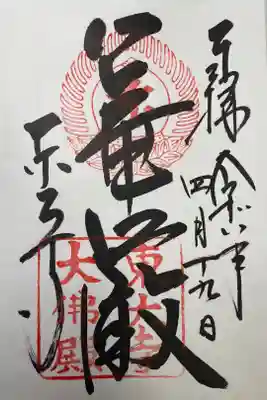 奉拝 令和六年
四月十九日
華厳
東大寺
東大寺
大佛殿